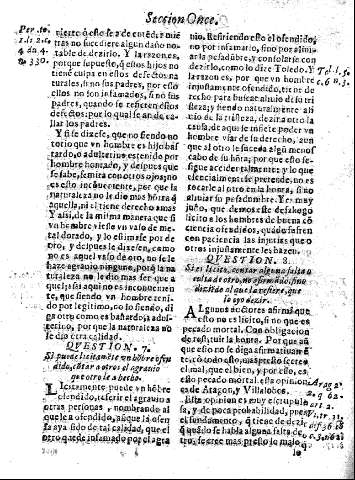 Section Once.
Per. to.
1. li. 2. c.
4. da. 4.
n. 330.
tras no succediere algun daño no-
table de dezirlo. Y la razon es,
porque supuesto, q̃ estos hijos no
tiene culpa en estos defectos na-
turales, ni no sus padres, por esso
ellos no son infamados, si no sus
padres, quando se repiten estos
defectos: por lo qual se an de ca-
llar los padres.
Y si se dixese, que no siendo no-
torio que vn hombre es hijo bas
tardo, o adulterino es tenido por
hombre honrado, y despues que
se sabe, se mira con otros ojos, no
es esto incõuenente, por que la
naturaleza no le dio mas hõra q̃
aquella, ni el tiene derecho a mas
Y asi, de la misma manera que si
vn hombre viese vn vaso de me-
tal dorado, y lo estimase por de
oro, y despues le dixesen, como
no es aquel vaso de oro, no se le
haze agrauio ninguno, porq̃ la na
turaleza no le dio mas ser que a
quel; asi aqui no es inconuenien-
te, que siendo vn hombre teni-
do por legitimo, no lo siendo, di
ga otro como es bañardo; a adul-
terino, por que la naturaleza no
le dio otra calidad.
QVESTION. 7.
Si puede licitamẽte vn hõbre ofen
dido, cõtar a otros el agrauio
que otro le a hecho.
Licitamente puede vn hõbre
ofendido, referir el agrauio a
otras personas, nombrando al
quele a ofendido, aũque la ofen
sa aya sido de tal calidad, que el
otro quede infamado por el agra
uio. Refiriendo esto el ofendido,
no por infamarlo, sino por aliui-
ar la pesadũbre, y consolarse con
dezirlo, como lo dize Toledo. Y
la razon es, por que vn hombre
injustamente ofendido, tiene de
recho para buscar aliuio de su tris
teza; y siendo naturalmente ali
uio de la tristeza, dezir a otro la
causa, de aqui se infiere poder vn
hombre vsar de su derecho, aun
que al otro le suceda algũ menos
cabo de su hõra; por que esto se si-
gue accidentalmente y lo que
essencialmente se pretende, no es
tocarle al otro en la honra, si no
aliuiar su pesadumbre. Yes muy
justo, que de mos este desahogo
licito a los hombres de buena cõ
ciencia ofendidos, quãdo sufren
con paciencia las injurias que o-
tros injustamente les hazen.
Tol. l. 5.
c. 6. n. 3.
QVESTION. 8.
Si es licito, contar alguna falta o
culta de otro, no afirmãdo, sino
diziẽdo al que la refiere, que
lo oyo dezir.
Algunos dictores afirmã que
esto no es licito, si no que es
pecado mortal. Con obligacion
de restituir la honra. Por que aũ
que esto no se diga afirmatiuamẽ
te, cõ todo eso, mas presto se cree
el mal, que el bien, y por eso, es
esto pecado mortal. esta opinion
es de Aragon, y Villalobos.
Esta opinion es muy escrupulo
sa, y de poca probabilidad, pues
el fundamento, q̃ tiene de dezir
q̃ quãdo se habla alguna falta de
otro, se cree mas presto lo malo q̃
lo